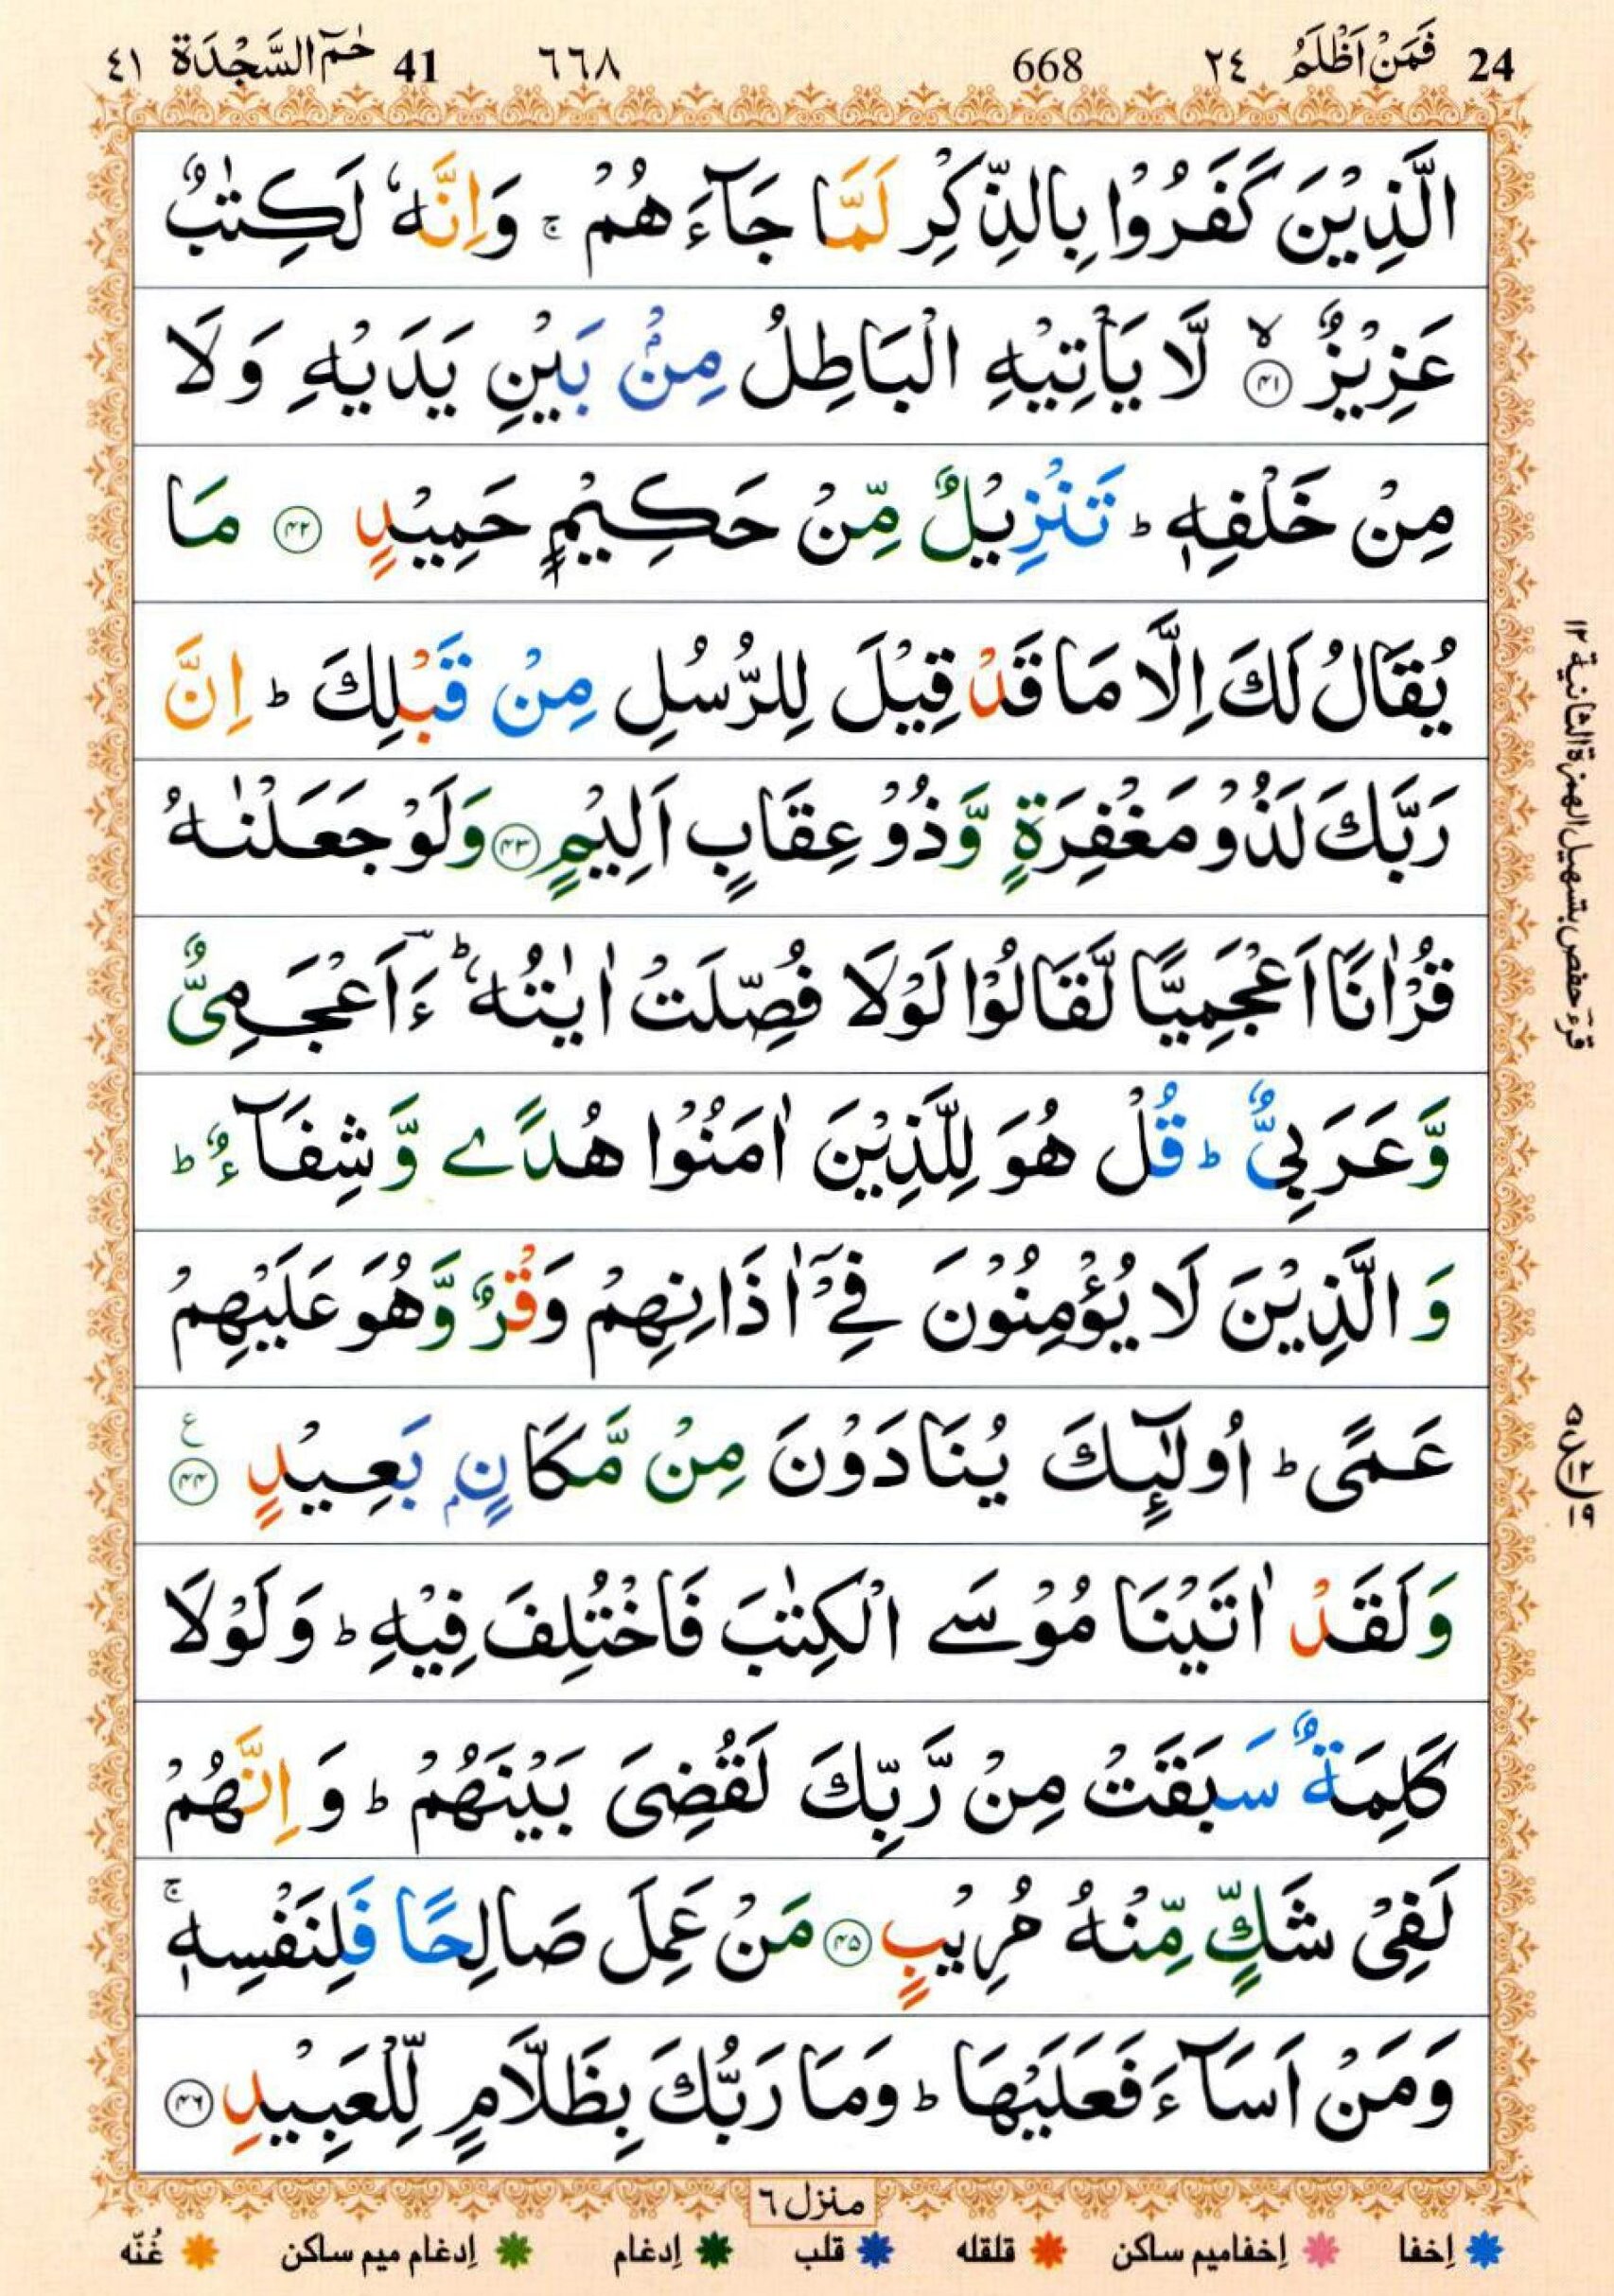 24 فَمَنْ اَظْلَمُ ٢٤ 668 ٦٦٨ 41 حٰمٓ السَّجْدَة ٤١
الَّذِيْنَ كَفَرُوْا بِالذِّكْرِ لَمَّا جَآءَهُمْ ۚ وَاِنَّهٗ لَكِتٰبٌ
عَزِيْزٌ ۙ﴿۴۱﴾ لَّا يَاْتِيْهِ الْبَاطِلُ مِنْۢ بَيْنِ يَدَيْهِ وَلَا
مِنْ خَلْفِهٖ ؕ تَنْزِيْلٌ مِّنْ حَكِيْمٍ حَمِيْدٍ ﴿۴۲﴾ مَا
يُقَالُ لَكَ اِلَّا مَا قَدْ قِيْلَ لِلرُّسُلِ مِنْ قَبْلِكَ ؕ اِنَّ
رَبَّكَ لَذُوْ مَغْفِرَةٍ وَّذُوْ عِقَابٍ اَلِيْمٍ ﴿۴۳﴾ وَلَوْ جَعَلْنٰهُ
قُرْاٰنًا اَعْجَمِيًّا لَّقَالُوْا لَوْلَا فُصِّلَتْ اٰيٰتُهٗ ؕ ءَؔاَعْجَمِيٌّ
وَّعَرَبِيٌّ ؕ قُلْ هُوَ لِلَّذِيْنَ اٰمَنُوْا هُدًے وَّشِفَآءٌ ؕ
وَ الَّذِيْنَ لَا يُؤْمِنُوْنَ فِيْۤ اٰذَانِهِمْ وَقْرٌ وَّهُوَ عَلَيْهِمْ
عَمًى ؕ اُولٰٓئِكَ يُنَادَوْنَ مِنْ مَّكَانٍۭ بَعِيْدٍ ﴿۴۴﴾ ع
وَلَقَدْ اٰتَيْنَا مُوْسَے الْكِتٰبَ فَاخْتُلِفَ فِيْهِ ؕ وَلَوْلَا
كَلِمَةٌ سَبَقَتْ مِنْ رَّبِّكَ لَقُضِيَ بَيْنَهُمْ ؕ وَ اِنَّهُمْ
لَفِيْ شَكٍّ مِّنْهُ مُرِيْبٍ ﴿۴۵﴾ مَنْ عَمِلَ صَالِحًا فَلِنَفْسِهٖ ۚ
وَمَنْ اَسَآءَ فَعَلَيْهَا ؕ وَمَا رَبُّكَ بِظَلَّامٍ لِّلْعَبِيْدِ ﴿۴۶﴾
قرءحفص بتسهيل الهمزة الثانية ١٢
منزل ٦
إخفا إخفاميم ساكن قلقله قلب إدغام إدغام ميم ساكن غُنّه